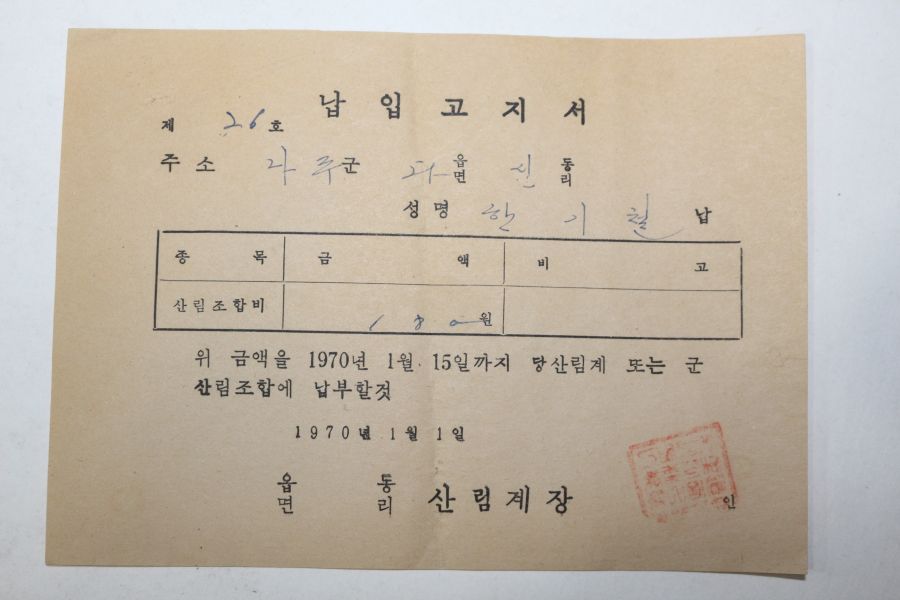 납입고지서
제 26 호
주소 파주 군 읍면 신 동리
성명 한기철 납
종목 금액 비고
산림조합비 180 원
위 금액을 1970년 1월 15일까지 당산림계 또는 군
산림조합에 납부할것
1970년 1월 1일
읍면 동리 산림계장 인